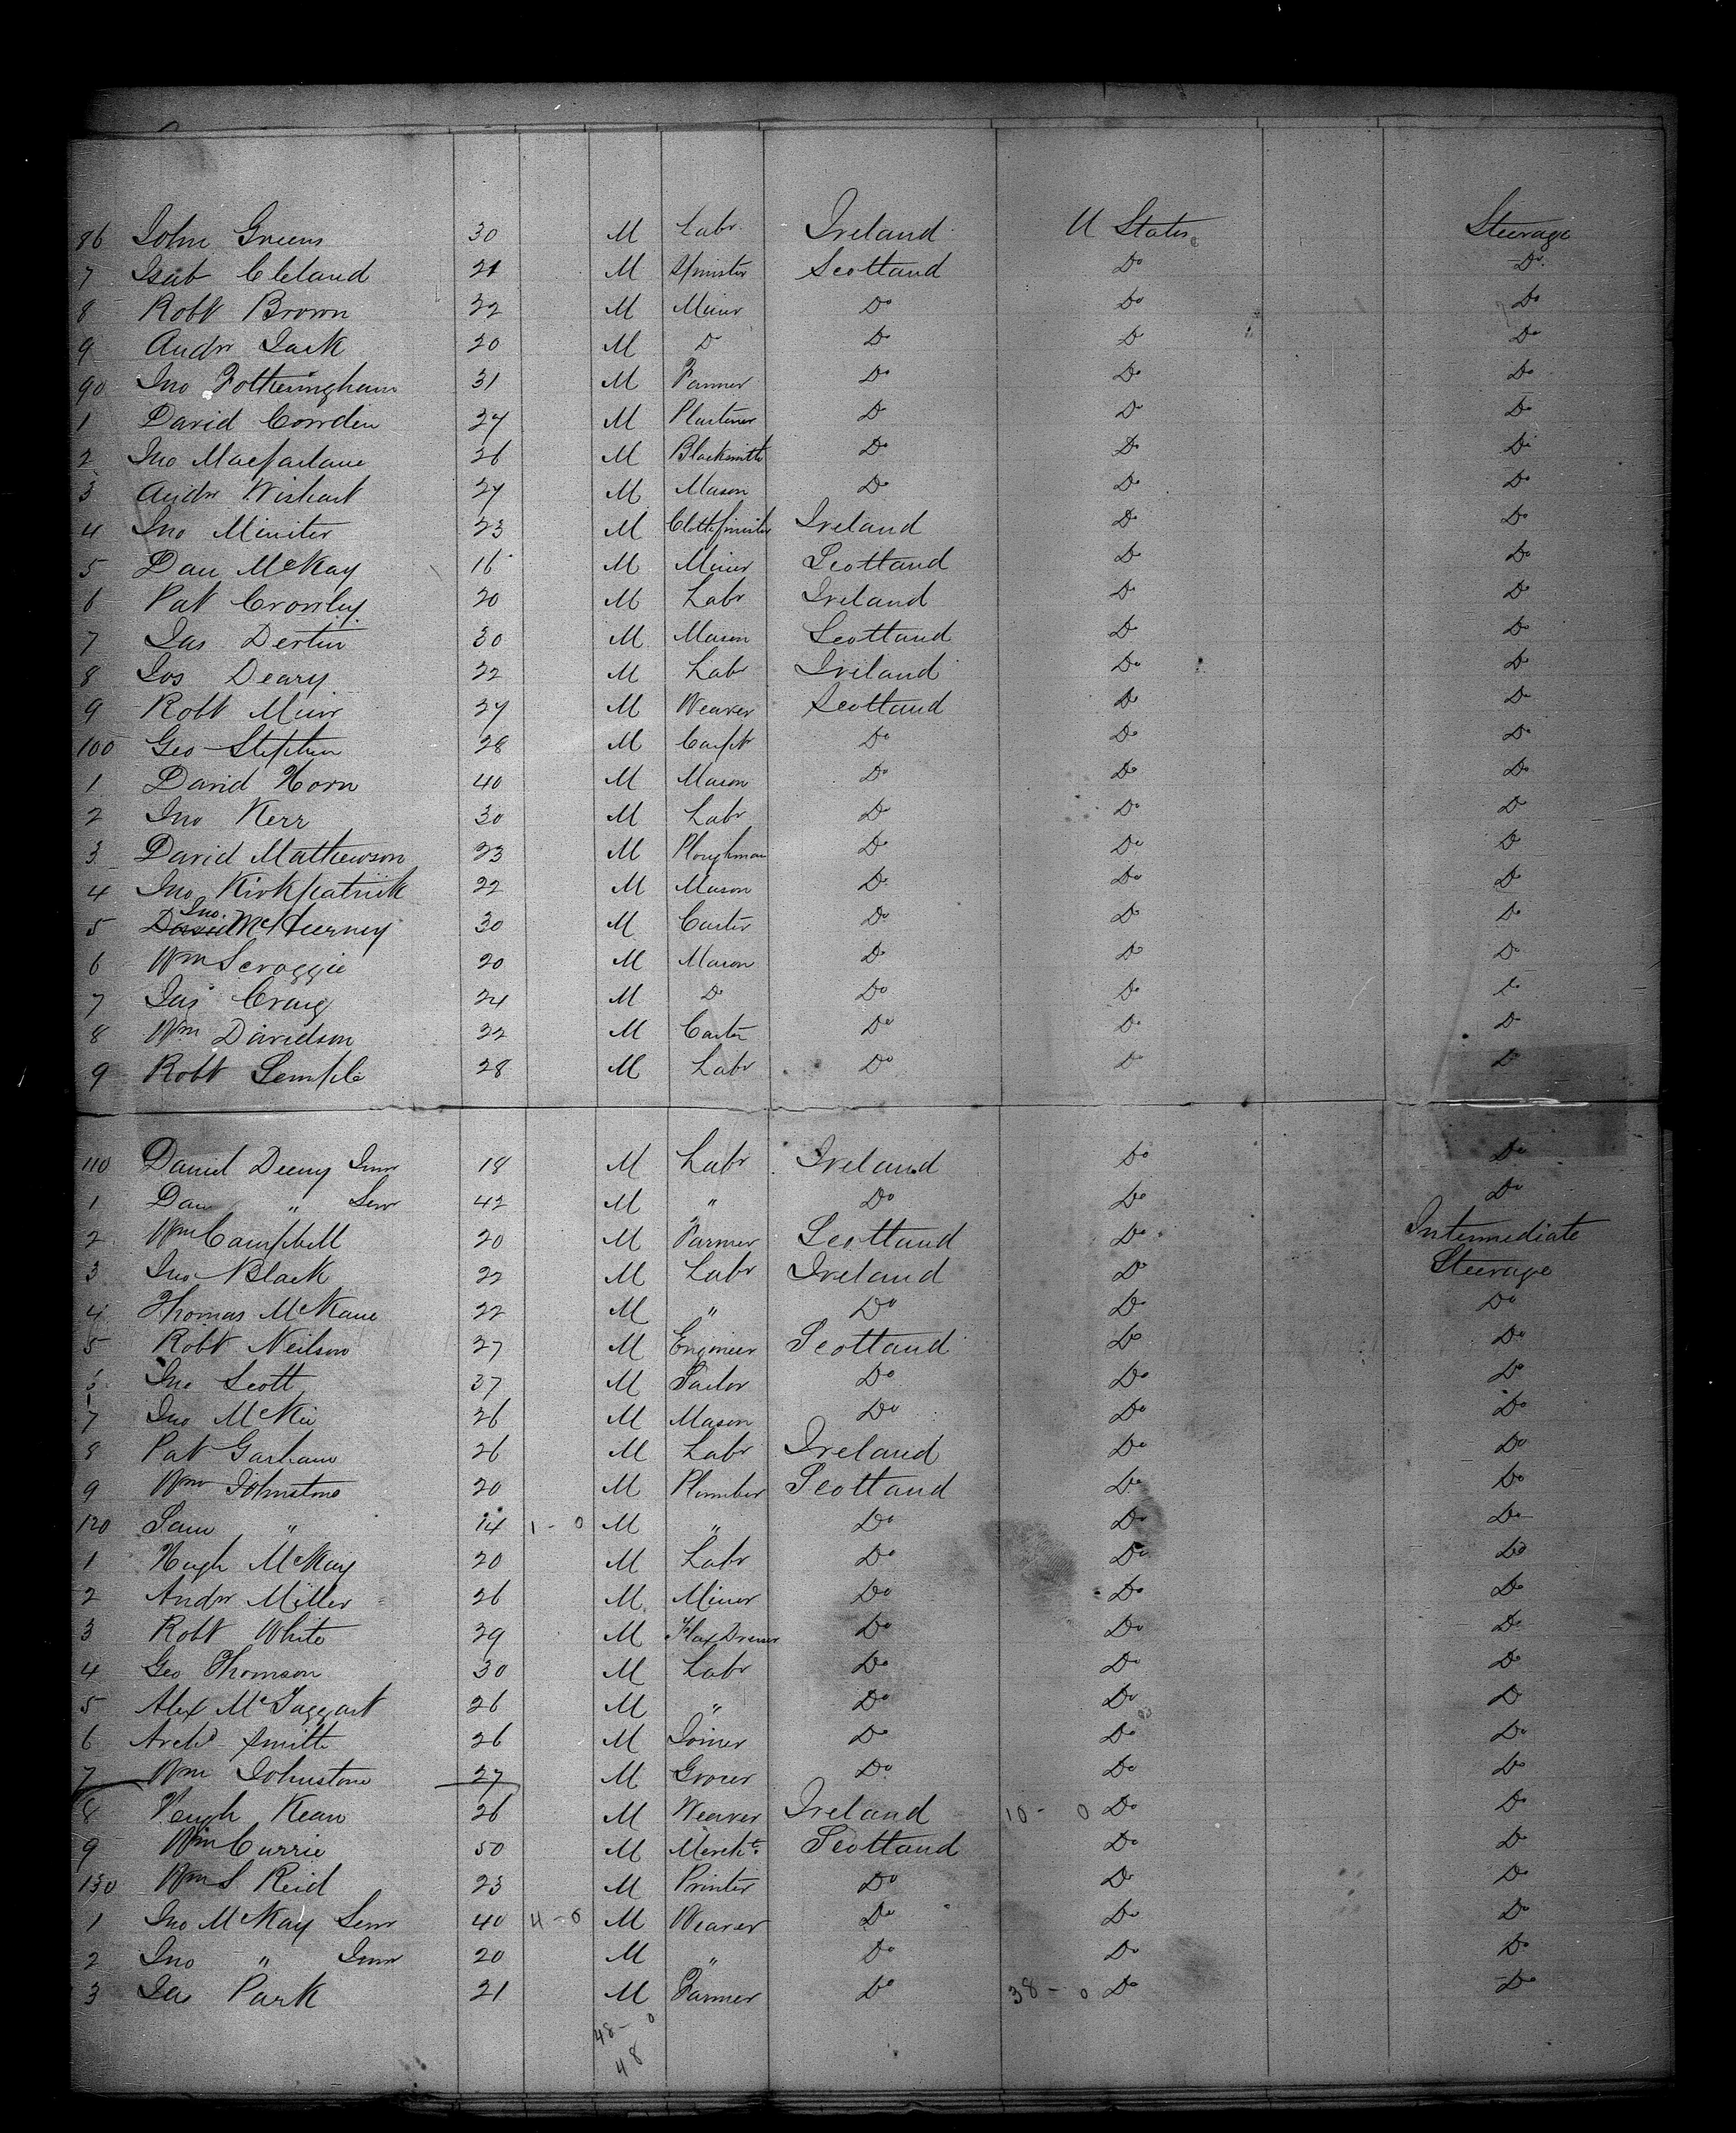 86 John Greens 30 M Labr Ireland U States Steerage
7 Isab Cleland 21 M Spinster Scotland Do Do
8 Robt Brown 22 M Miner Do Do Do
9 Andw Jack 20 M Do Do Do Do
90 Jno Fotheringham 31 M Farmer Do Do Do
1 David Cowden 27 M Plasterer Do Do Do
2 Jno Macfarlane 26 M Blacksmith Do Do Do
3 Andw Wishart 27 M Mason Do Do Do
4 Jno Miniter 23 M Ireland Do Do
5 Dan McKay 16 M Miner Scotland Do Do
6 Pat Crowley 20 M Labr Ireland Do Do
7 Jas Dertin 30 M Mason Scotland Do Do
8 Jos Deary 22 M Labr Ireland Do Do
9 Robt Muir 27 M Weaver Scotland Do Do
100 Geo Stephen 28 M Carpt Do Do Do
1 David Horn 40 M Mason Do Do Do
2 Jno Kerr 30 M Labr Do Do Do
3 David Mathewson 23 M Ploughman Do Do Do
4 Jno Kirkpatrick 22 M Mason Do Do Do
5 David Jno. 30 M Carter Do Do Do
6 Wm Scroggie 20 M Mason Do Do Do
7 Jas Craig 24 M Do Do Do Do
8 Wm Davidson 32 M Carter Do Do Do
9 Robt Semple 28 M Labr Do Do Do
110 Daniel Deeny Junr 18 M Labr Ireland Do Do
1 Dan " Senr 42 M " Do Do Do
2 Wm Campbell 20 M Farmer Scotland Do Intermediate
3 Jno Black 22 M Labr Ireland Do Steerage
4 Thomas McKane 22 M " Do Do Do
5 Robt Neilson 27 M Engineer Scotland Do Do
6 Jno Scott 37 M Sailor Do Do Do
7 Jno McKie 26 M Mason Do Do Do
8 Pat 26 M Labr Ireland Do Do
9 Wm Johnstone 20 M Plumber Scotland Do Do
120 Sam " 14 1-0 M " Do Do Do
1 Hugh McKay 20 M Labr Do Do Do
2 Andw Miller 26 M Miner Do Do Do
3 Robt White 29 M Flax Dresser Do Do Do
4 Geo Thomson 30 M Labr Do Do Do
5 Alex McTaggart 26 M " Do Do Do
6 Archd Smith 26 M Joiner Do Do Do
7 Wm Johnstone 27 M Grocer Do Do Do
8 Hugh Kean 26 M Weaver Ireland 10-0 Do Do
9 Wm Currie 50 M Mercht Scotland Do Do
130 Wm S Reid 23 M Printer Do Do Do
1 Jno McKay Senr 40 4-0 M Weaver Do Do Do
2 Jno " Junr 20 M " Do Do Do
3 Jas Park 21 M Farmer Do 38-0 Do Do
48-0
48